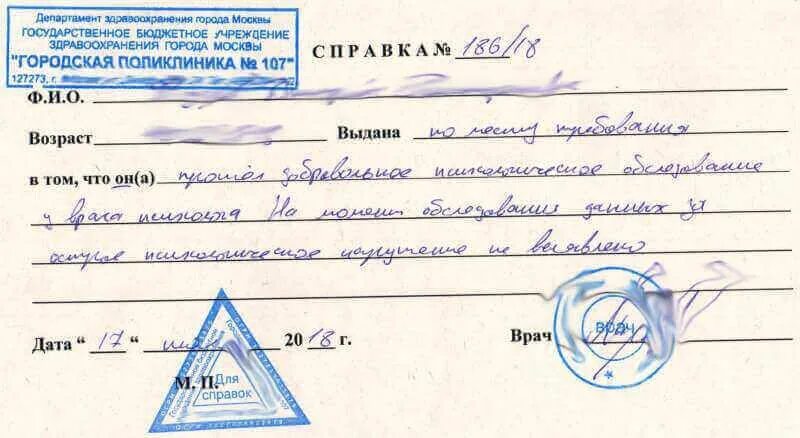 Департамент здравоохранения города Москвы
ГОСУДАРСТВЕННОЕ БЮДЖЕТНОЕ УЧРЕЖДЕНИЕ
ЗДРАВООХРАНЕНИЯ ГОРОДА МОСКВЫ
"ГОРОДСКАЯ ПОЛИКЛИНИКА № 107"
127273, г.
СПРАВКА № 186/18
Ф.И.О.
Возраст Выдана по месту требования
в том, что он(а) прошел добровольное психологическое обследование
у врача психолога На момент обследования данных за
острое психологическое нарушение не выявлено
Дата " 17 " 2018 г. Врач
врач
М. П.
Для
справок